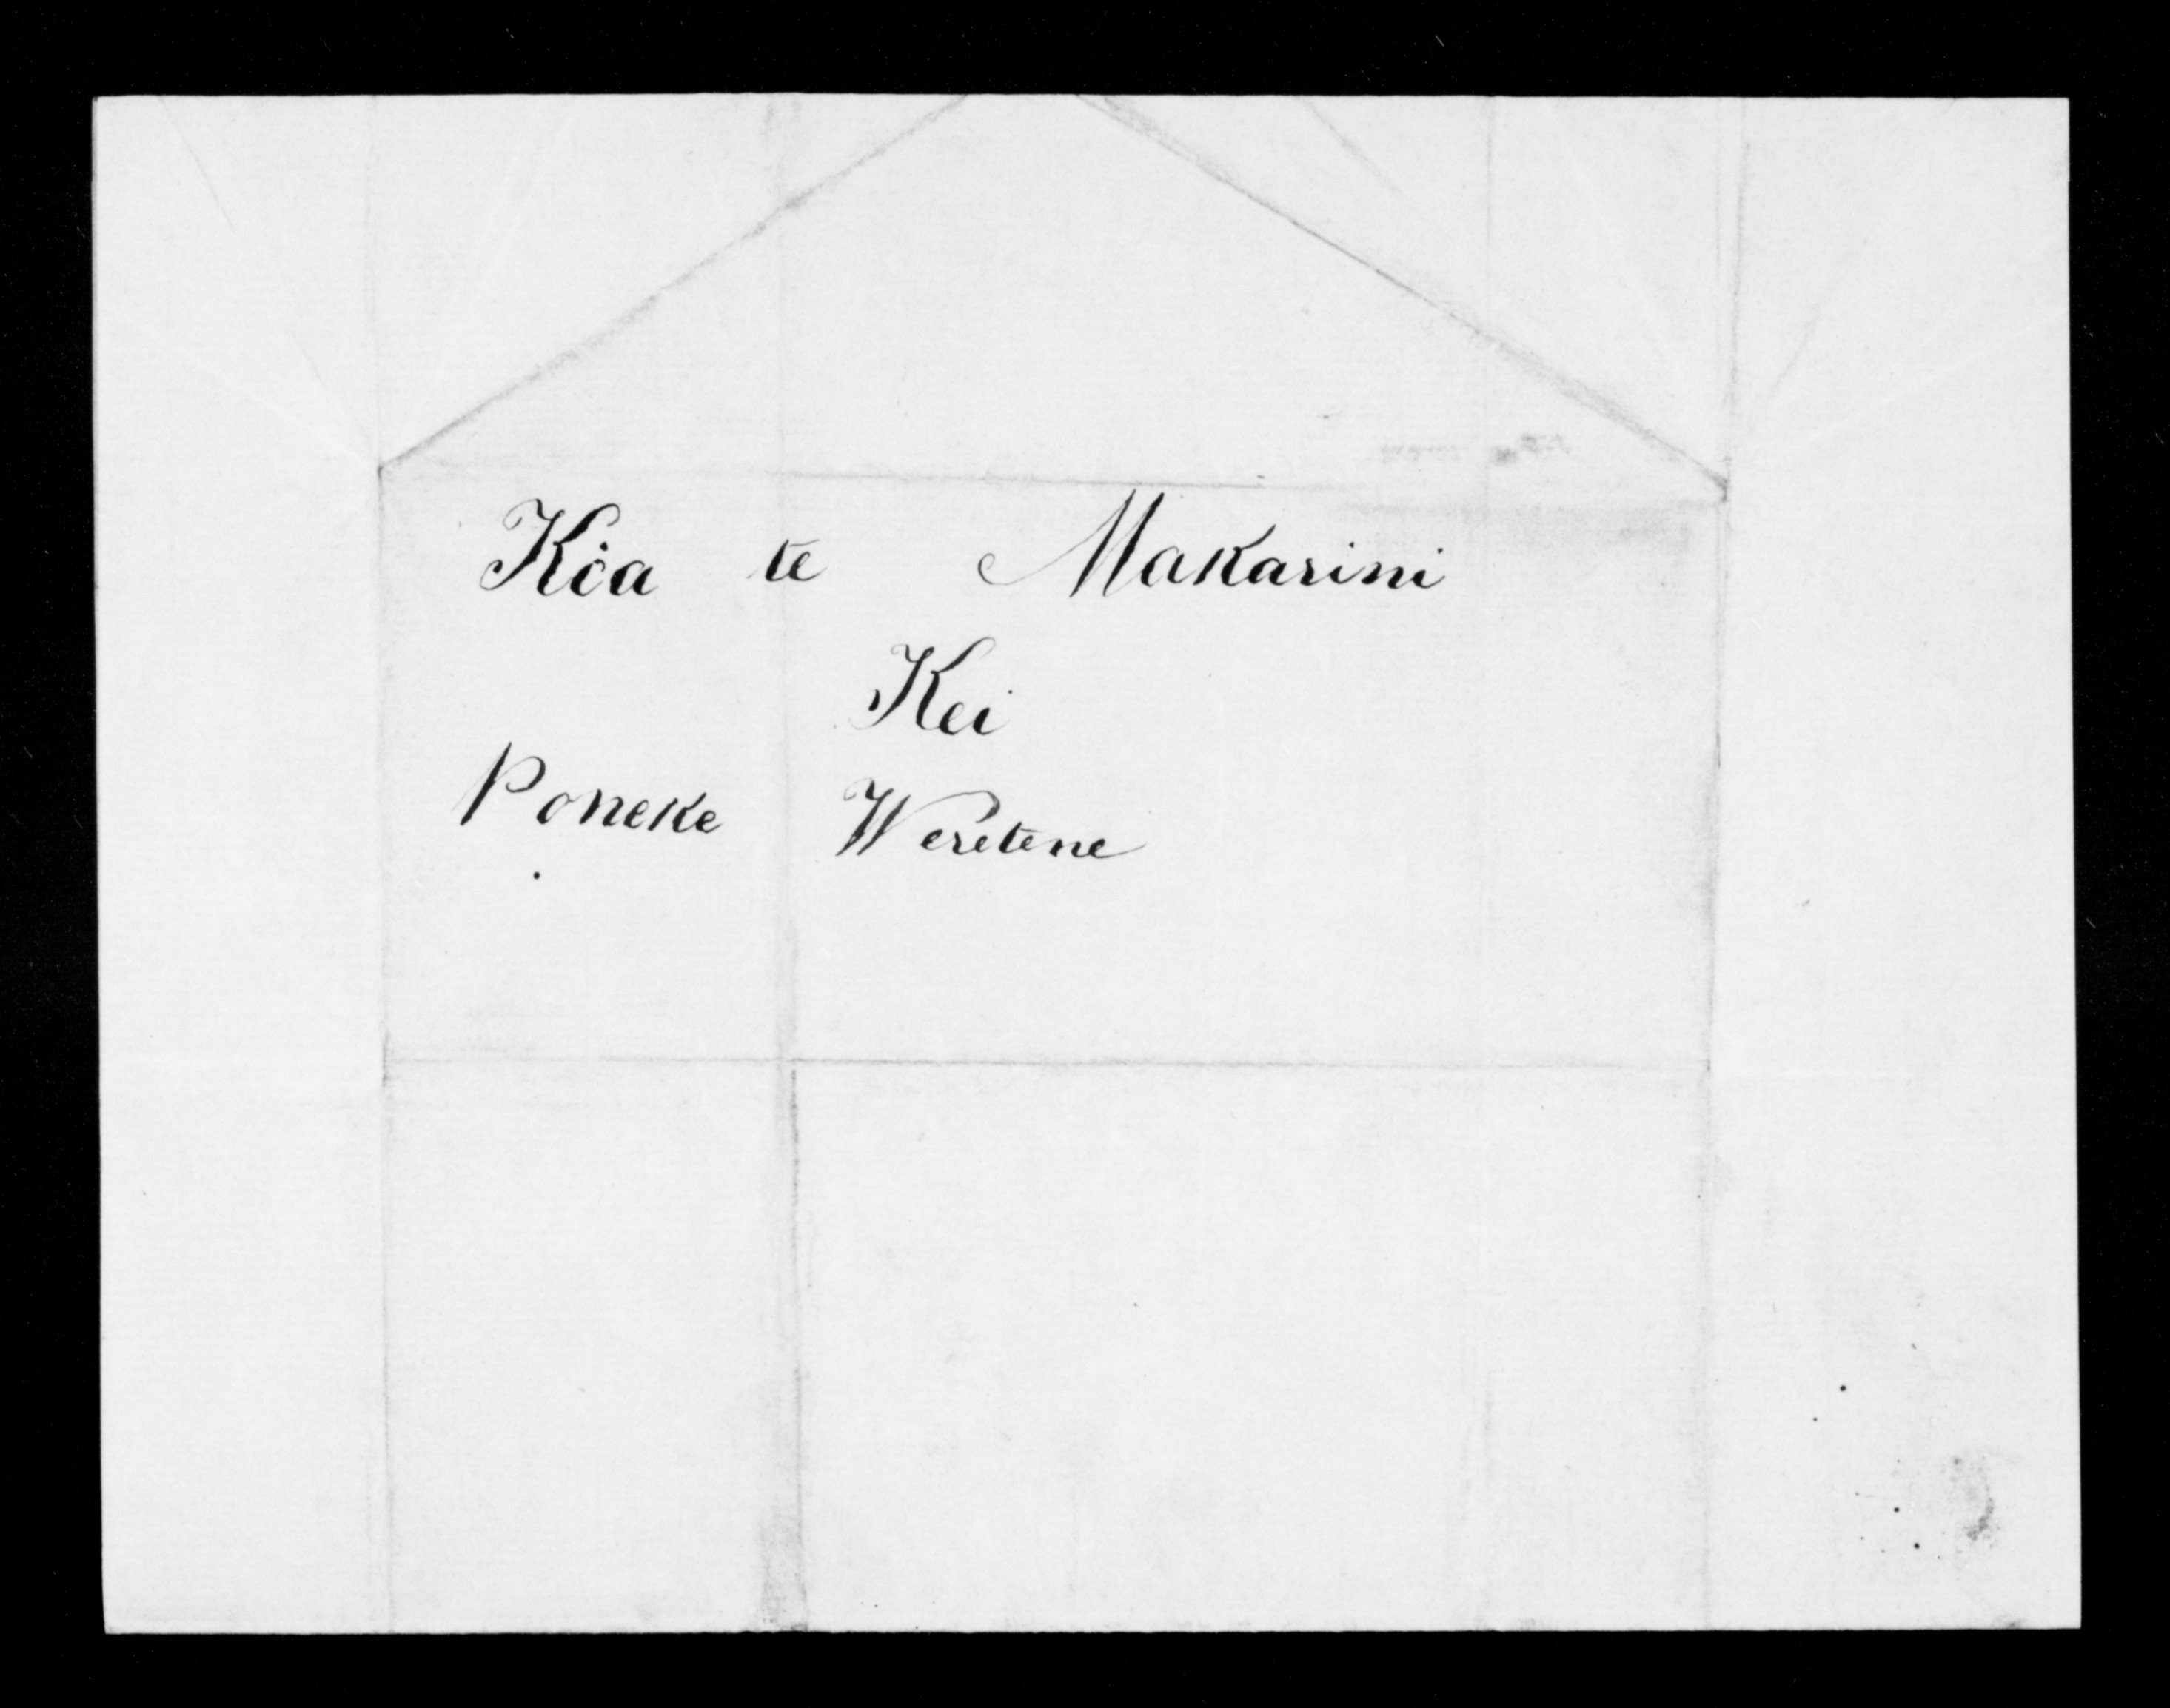 Kia te Makarini
Kei
Poneke Weretene